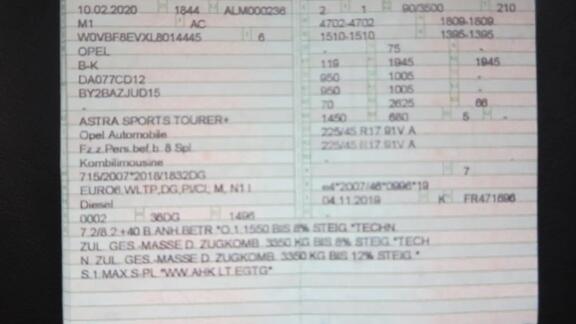 10.02.2020 1844 ALM000236 2 1 90/3500 210
M1 AC 4702-4702 1809-1809
W0VBF8EVXL8014445 6 1510-1510 1395-1395
OPEL - 75 -
B-K 119 1945 1945
DA077CD12 950 1005 -
BY2BAZJUD15 950 1005 -
- 70 2625 66
ASTRA SPORTS TOURER+ 1450 680 5 -
Opel Automobile 225/45 R17 91V A
Fz.z.Pers.bef.b. 8 Spl. 225/45 R17 91V A
Kombilimousine -
715/2007*2018/1832DG 7
EURO6, WLTP,DG,PI/CI, M, N1 I e4*2007/46*0996*19
Diesel 04.11.2019 K FR471696
0002 36DG 1496
7.2/8.2:+40 B.ANH.BETR.*O.1:1550 BIS 8% STEIG.*TECHN.
ZUL. GES.-MASSE D. ZUGKOMB. 3350 KG BIS 8% STEIG.*TECH
N. ZUL. GES-MASSE D. ZUGKOMB. 3350 KG BIS 12% STEIG.*
S.1:MAX.S-PL.*WW.AHK LT.EGTG*